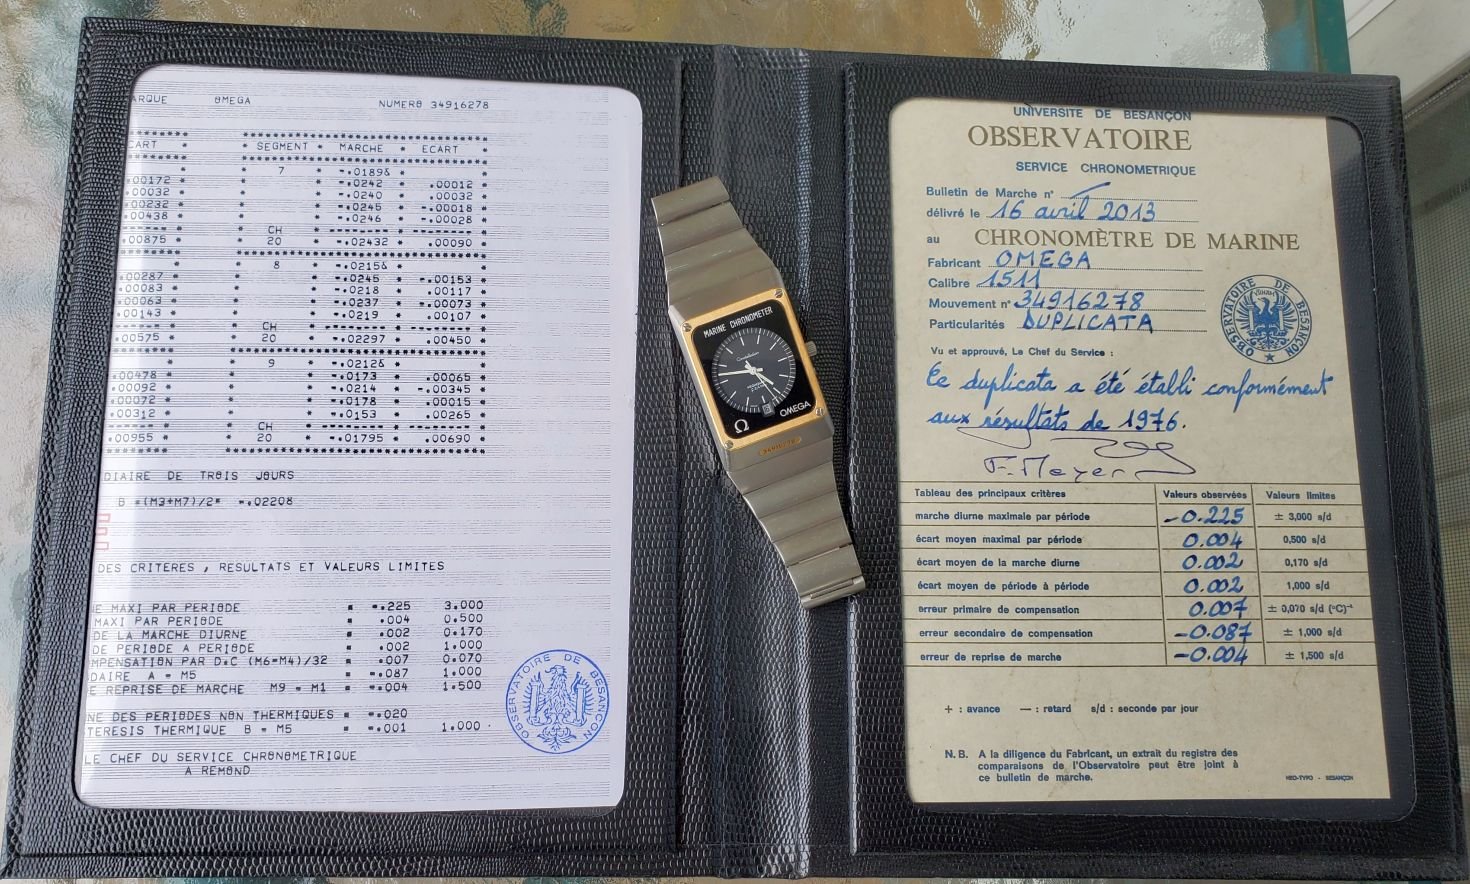 ARQUE OMEGA NUMERO 34916278
CART * * SEGMENT * MARCHE * ECART *
7 -.0189& *
.00172 * -.0242 * .00012 *
.00032 * -.0240 * .00032 *
.00232 * -.0245 * -.00018 *
.00438 * -.0246 * -.00028 *
CH
.00875 * 20 -.02432 * .00090 *
8 -.0215& *
.00287 * -.0245 * -.00153 *
.00083 * -.0218 * .00117 *
.00063 * -.0237 * -.00073 *
.00143 * -.0219 * .00107 *
CH
.00575 * 20 -.02297 * .00450 *
9 -.0212& *
.00478 * -.0173 * .00065 *
.00092 * -.0214 * -.00345 *
.00072 * -.0178 * .00015 *
.00312 * -.0153 * .00265 *
CH
.00955 * 20 -.01795 * .00690 *
DIAIRE DE TROIS JOURS
B =(M3+M7)/2= -.02208
DES CRITERES , RESULTATS ET VALEURS LIMITES
E MAXI PAR PERIODE = -.225 3.000
MAXI PAR PERIODE = .004 0.500
DE LA MARCHE DIURNE = .002 0.170
DE PERIODE A PERIODE = .002 1.000
MPENSATION PAR D.C (M6-M4)/32 = .007 0.070
DAIRE A - M5 = -.087 1.000
E REPRISE DE MARCHE M9 - M1 = -.004 1.500
NE DES PERIODES NON THERMIQUES = -.020
TERESIS THERMIQUE B - M5 = -.001 1.000
LE CHEF DU SERVICE CHRONOMETRIQUE
A REMOND
OBSERVATOIRE DE BESANCON
MARINE CHRONOMETER
Constellation
Ω OMEGA
UNIVERSITE DE BESANÇON
OBSERVATOIRE
SERVICE CHRONOMETRIQUE
Bulletin de Marche n°
délivré le 16 avril 2013
au CHRONOMÈTRE DE MARINE
Fabricant OMEGA
Calibre 1511
Mouvement n° 34916278
Particularités DUPLICATA
OBSERVATOIRE DE BESANCON
Vu et approuvé, Le Chef du Service :
Ce duplicata a été établi conformément
aux résultats de 1976.
F. Meyer
Tableau des principaux critères Valeurs observées Valeurs limites
marche diurne maximale par période -0.225 ± 3,000 s/d
écart moyen maximal par période 0.004 0,500 s/d
écart moyen de la marche diurne 0.002 0,170 s/d
écart moyen de période à période 0.002 1,000 s/d
erreur primaire de compensation 0.007 ± 0,070 s/d (°C)⁻¹
erreur secondaire de compensation -0.087 ± 1,000 s/d
erreur de reprise de marche -0.004 ± 1,500 s/d
+ : avance — : retard s/d : seconde par jour
N.B. A la diligence du Fabricant, un extrait du registre des
comparaisons de l'Observatoire peut être joint à
ce bulletin de marche.
NEO-TYPO - BESANÇON